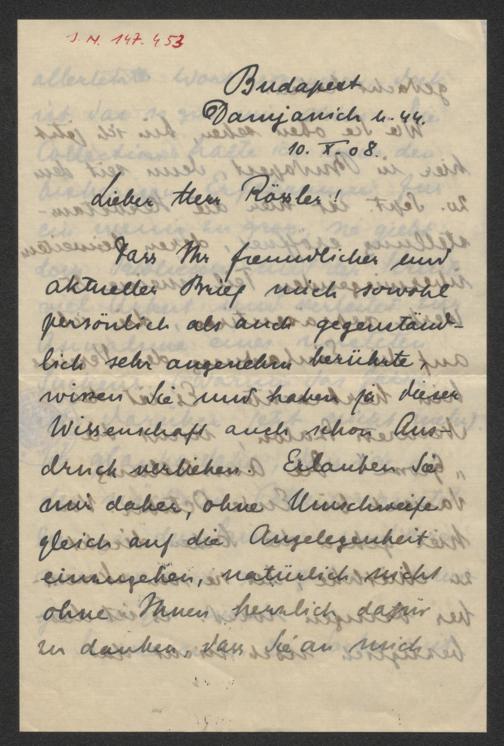 J. N. 147.453
Budapest
Damjanich u. 44.
10. X. 08.
Lieber Herr Rössler!
Dass Ihr freundlicher und
aktueller Brief mich sowohl
persönlich als auch gegenständ-
lich sehr angenehm berührte,
wissen Sie und haben ja dieser
Wissenschaft auch schon Aus-
druck verliehen. Erlauben Sie
mir daher, ohne Umschweife
gleich auf die Angelegenheit
einzugehen, natürlich nicht
ohne Ihnen herzlich dafür
zu danken, dass Sie an mich